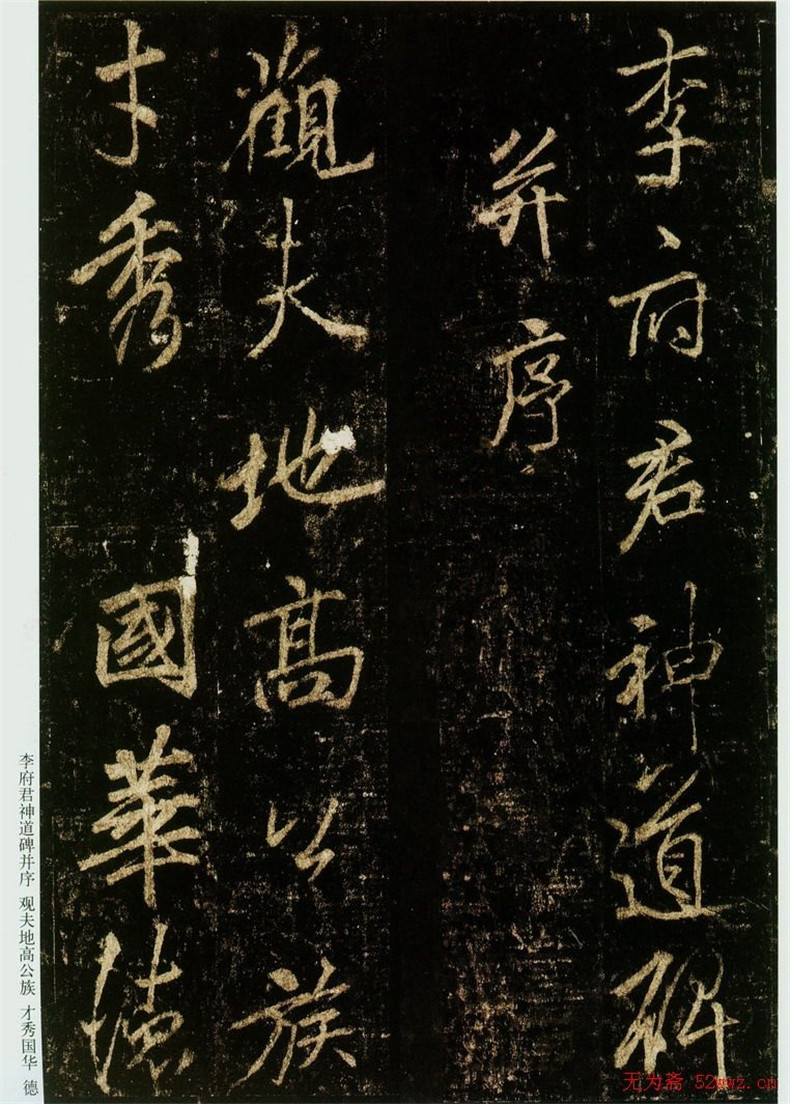 李府君神道碑
并序
觀夫地高公族
才秀國華德
李府君神道碑并序 观夫地高公族 才秀国华 德
无为斋 52wwz.cn